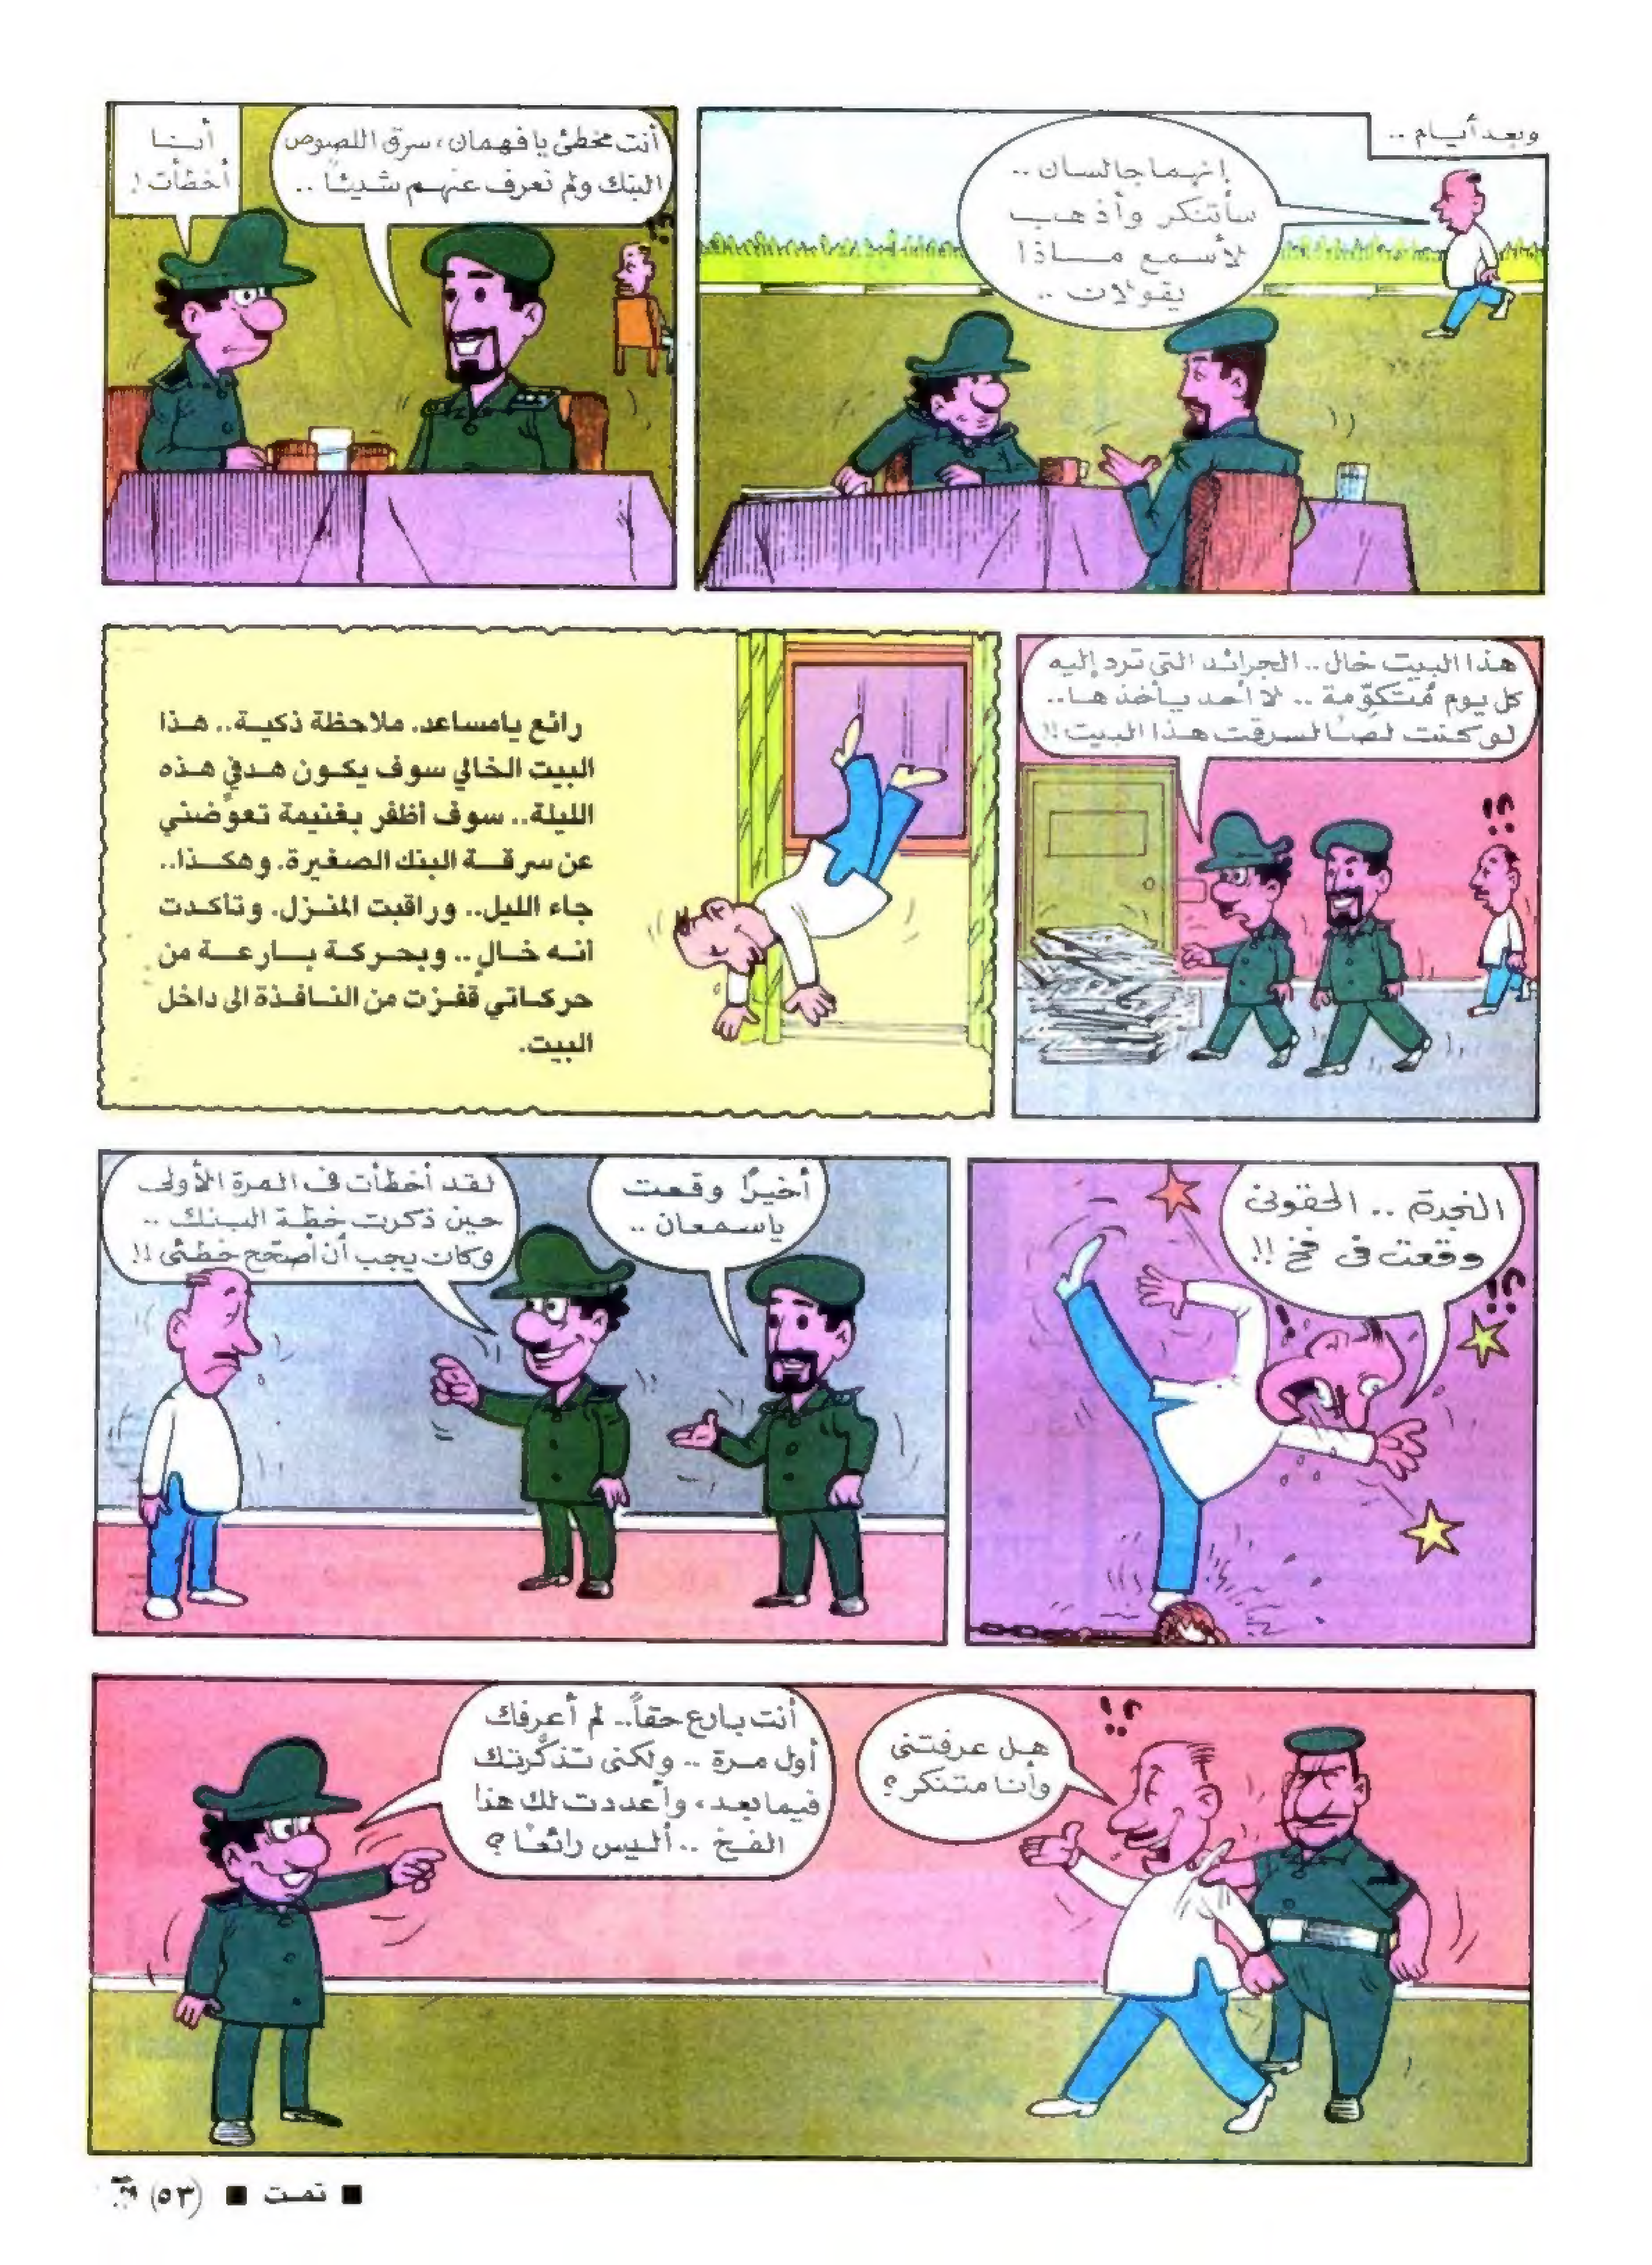 وبعد أيام ..
إنهما جالسان ..
سأتنكر وأذهب
لأسمع ماذا
يقولان ..
أنت مخطئ يا فهمان، سرق اللصوص
البنك ولم تعرف عنهم شيئاً ..
أنا
أخطأت !
هذا البيت خال .. الجرائد التي ترد إليه
كل يوم مُتكوّمة .. لا أحد يأخذها ..
لو كنت لصًا لسرقت هذا البيت !!
؟!
رائع يامساعد. ملاحظة ذكية.. هذا
البيت الخالي سوف يكون هدفي هذه
الليلة.. سوف أظفر بغنيمة تعوّضني
عن سرقة البنك الصغيرة. وهكذا..
جاء الليل.. وراقبت المنزل. وتأكدت
أنه خالٍ.. وبحركة بارعة من
حركاتي قفزت من النافذة الى داخل
البيت.
النجدة .. الحقونى
وقعت فى فخ !!
؟!
أخيرًا وقعت
ياسمعان ..
لقد أخطأت فى المرة الأولى
حين ذكرت خطة البنك ..
وكان يجب أن أصحّح خطئى !!
؟!
هل عرفتنى
وأنا متنكر ؟
أنت بارع حقاً.. لم أعرفك
أول مرة .. ولكنى تذكّرتك
فيما بعد، وأعددت لك هذا
الفخ .. أليس رائعًا ؟
■ تمت ■ (٥٣)